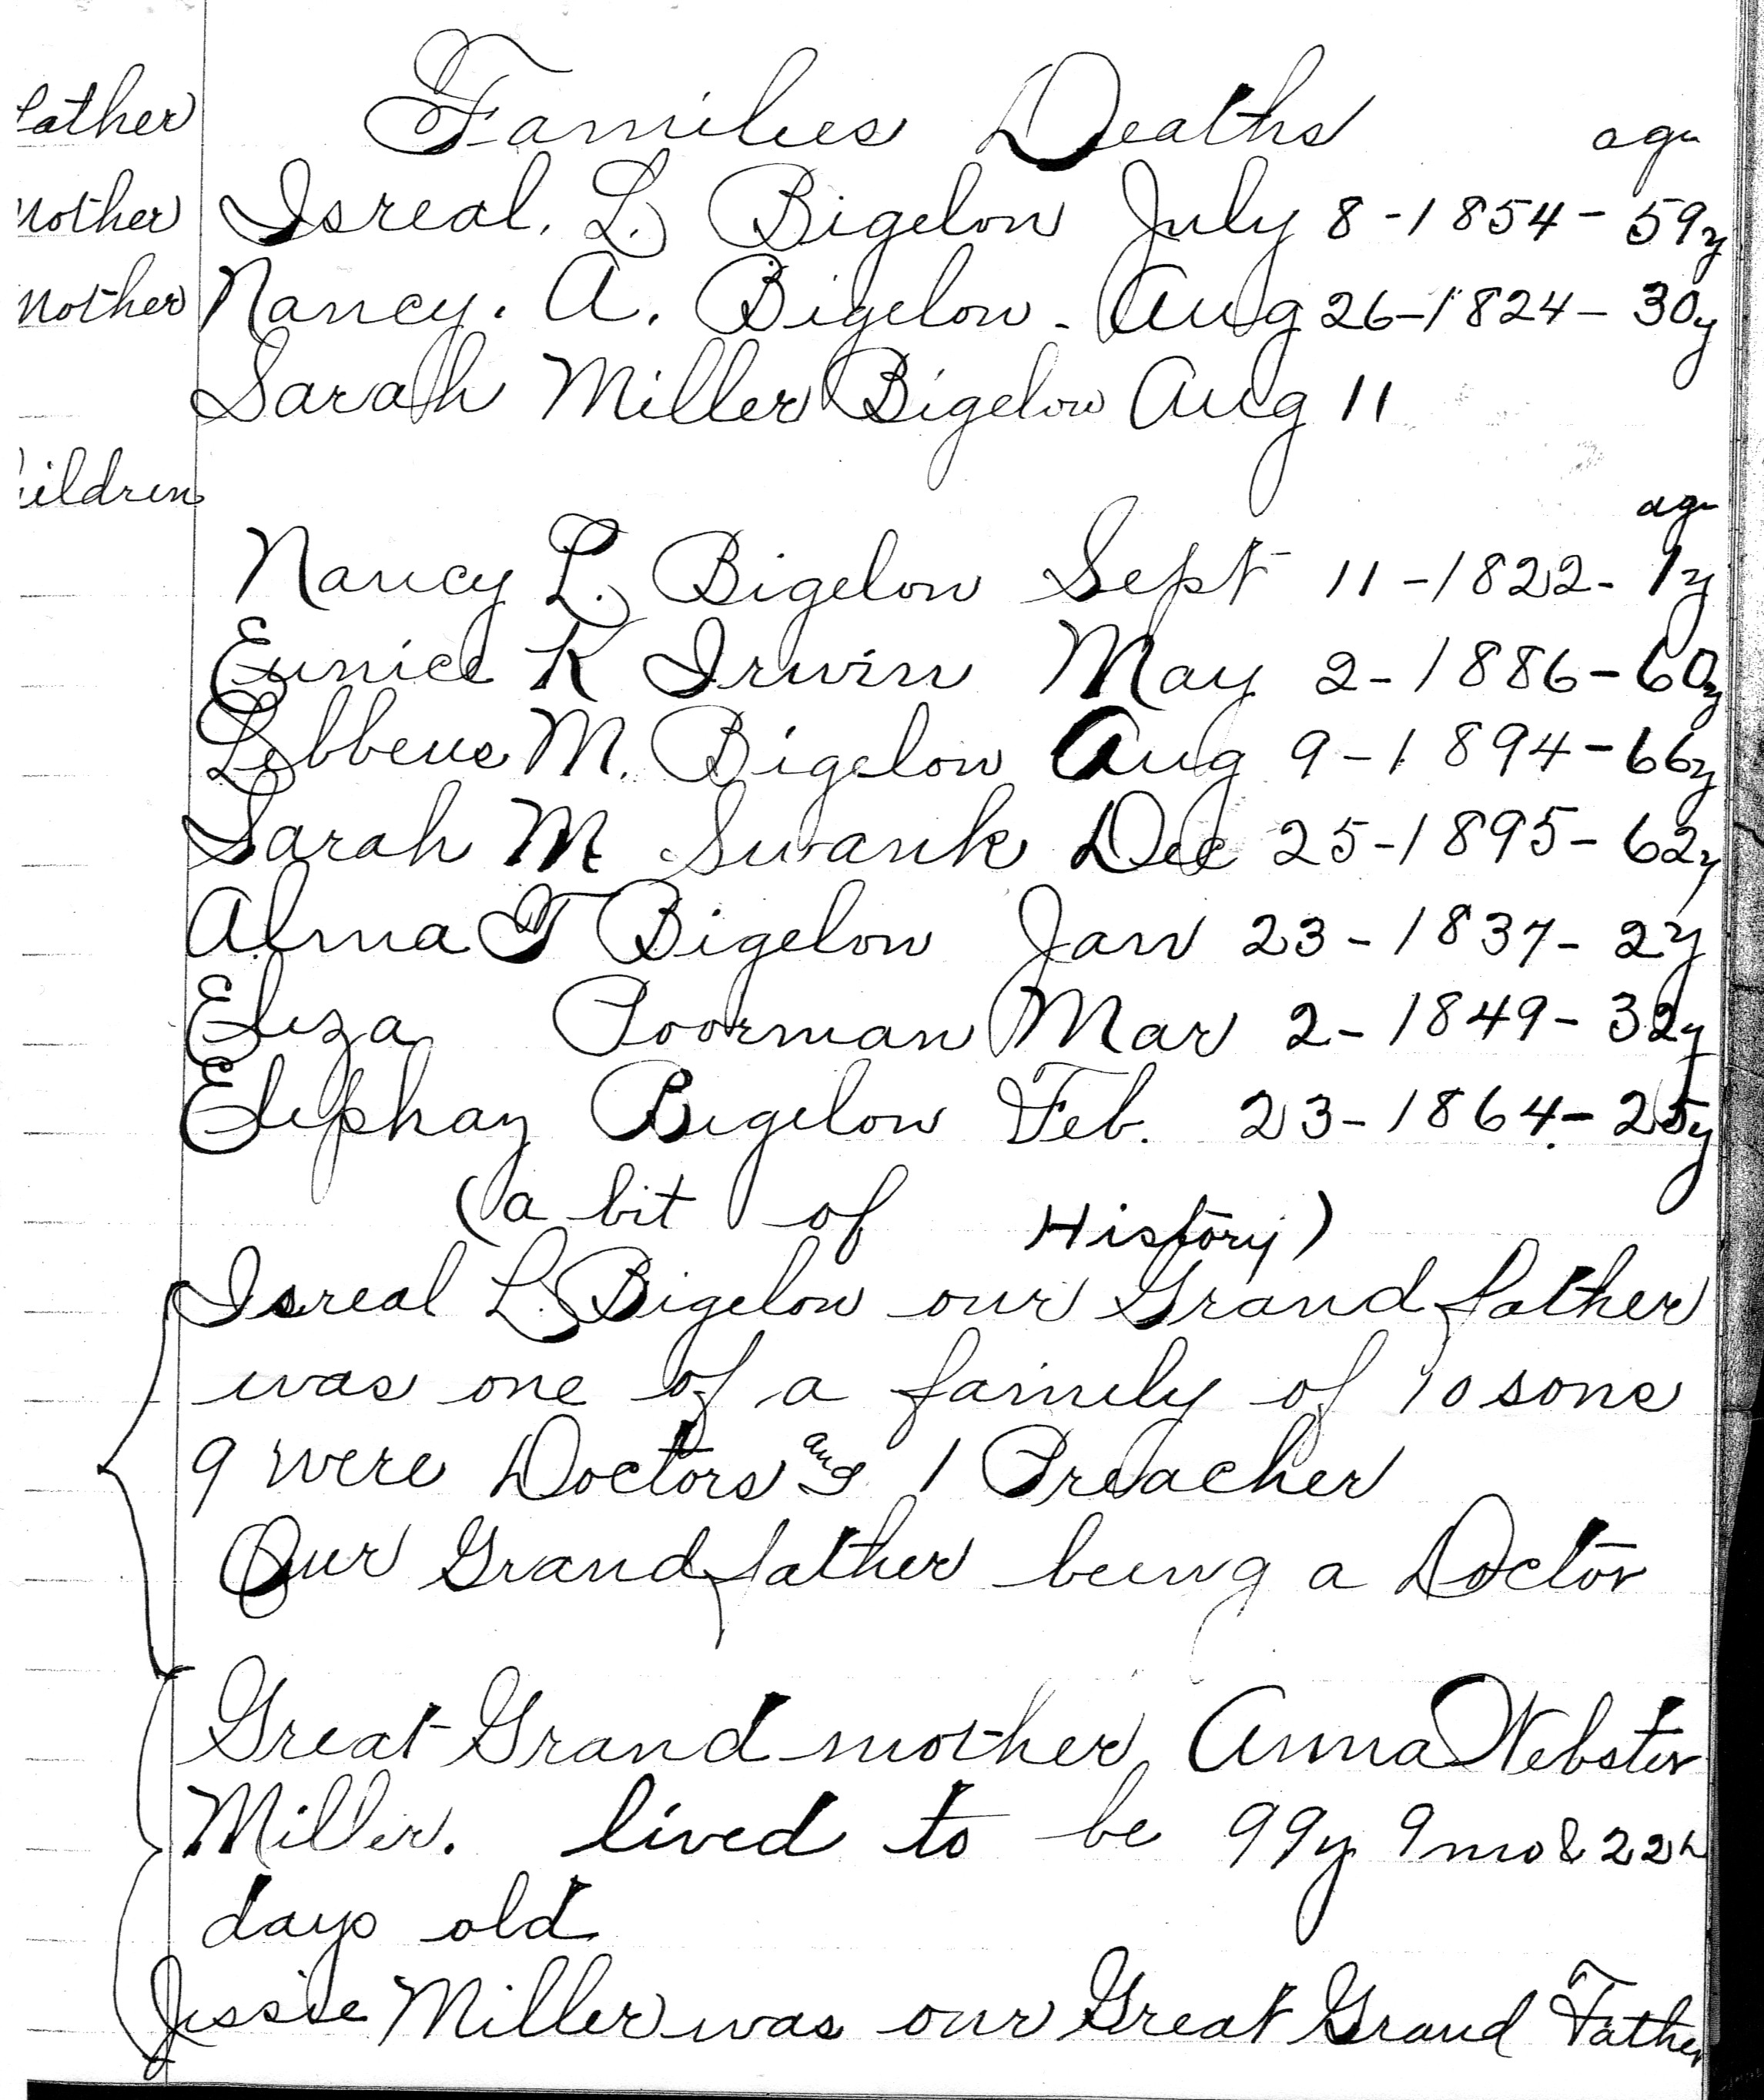 Father Families Deaths age
Mother Isreal. L. Bigelow July 8-1854-59y
Mother Nancy. A. Bigelow - Aug 26-1824-30y
Sarah Miller Bigelow Aug 11
ildren
age
Nancy L. Bigelow Sept 11-1822-1y
Eunice K Irwin May 2-1886-60y
Lebbeus M. Bigelow Aug 9-1894-66y
Sarah M Swank Dec 25-1895-62y
Alma T Bigelow Jan 23-1837-2y
Eliza Poorman Mar 2-1849-32y
Eliphaz Bigelow Feb. 23-1864-25y
(a bit of History)
Isreal L. Bigelow our Grand father
was one of a family of 10 sons
9 were Doctors and 1 Preacher
Our Grandfather being a Doctor
Great Grand mother Anna Webster
Miller. lived to be 99y 9mo & 22
days old
Jessie Miller was our Great Grand Father